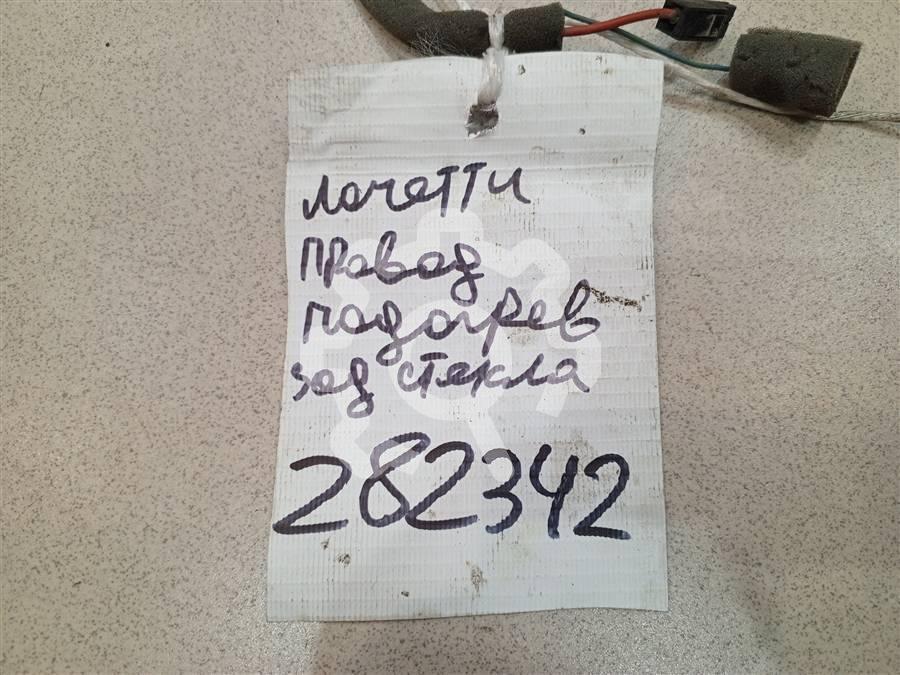 лачетти
провод
подогрев
зад стекла
282342